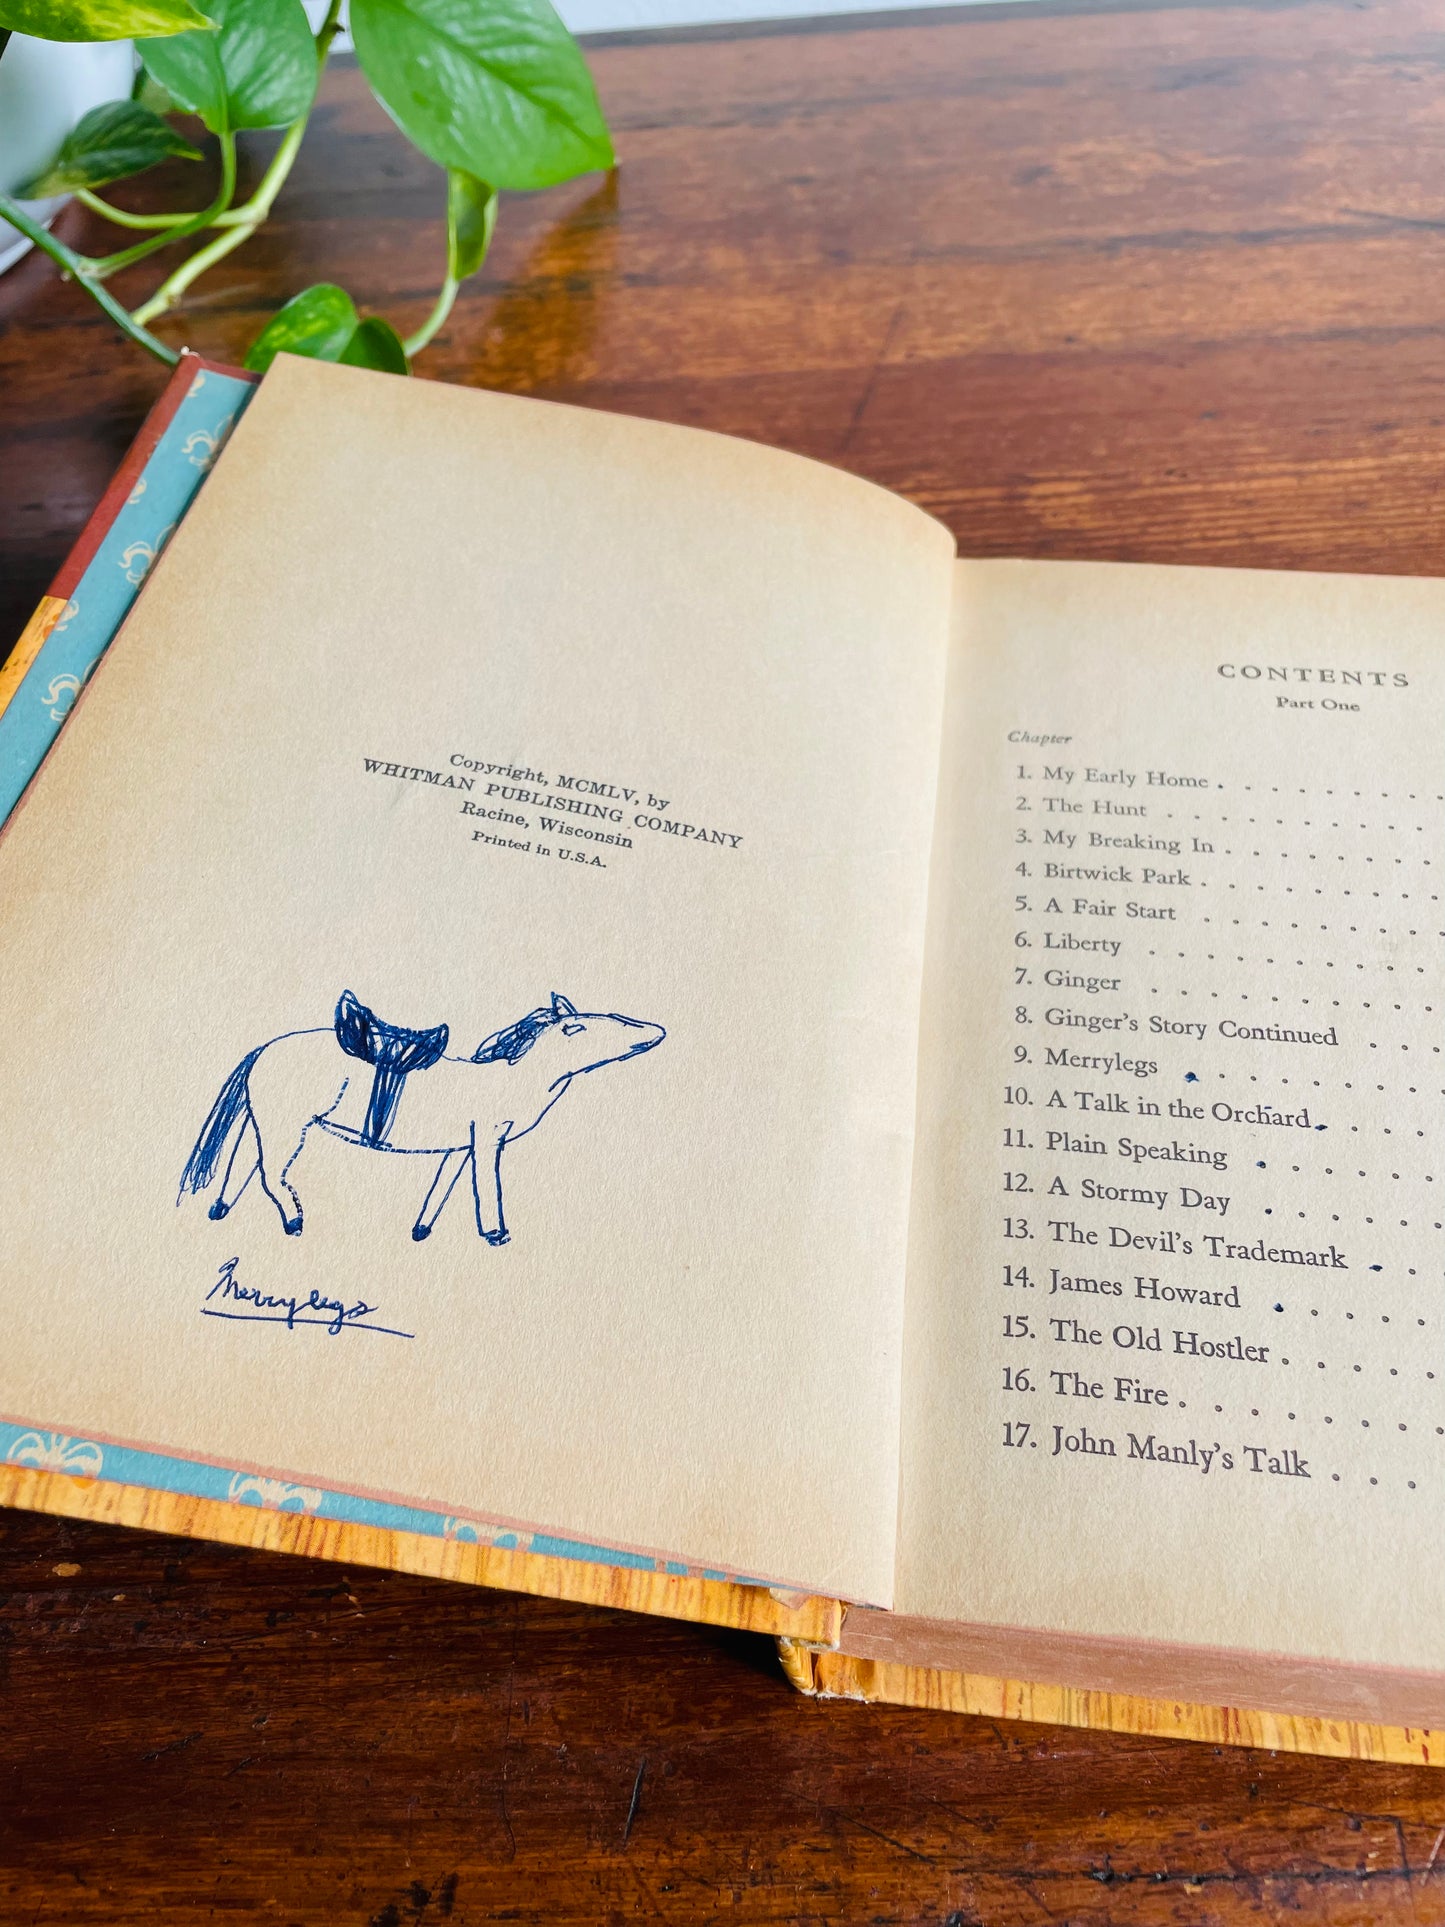 Copyright, MCMLV, by
WHITMAN PUBLISHING COMPANY
Racine, Wisconsin
Printed in U.S.A.
Merrylegs
CONTENTS
Part One
Chapter
1. My Early Home . . . . . . . .
2. The Hunt . . . . . . . . .
3. My Breaking In . . . . . . . .
4. Birtwick Park . . . . . . . . .
5. A Fair Start . . . . . . . . .
6. Liberty . . . . . . . . . .
7. Ginger . . . . . . . . . .
8. Ginger's Story Continued . . .
9. Merrylegs . . . . . . . . .
10. A Talk in the Orchard . . . .
11. Plain Speaking . . . . . .
12. A Stormy Day . . . . . .
13. The Devil's Trademark . .
14. James Howard . . . . .
15. The Old Hostler . . . . .
16. The Fire . . . . . . . .
17. John Manly's Talk . . .